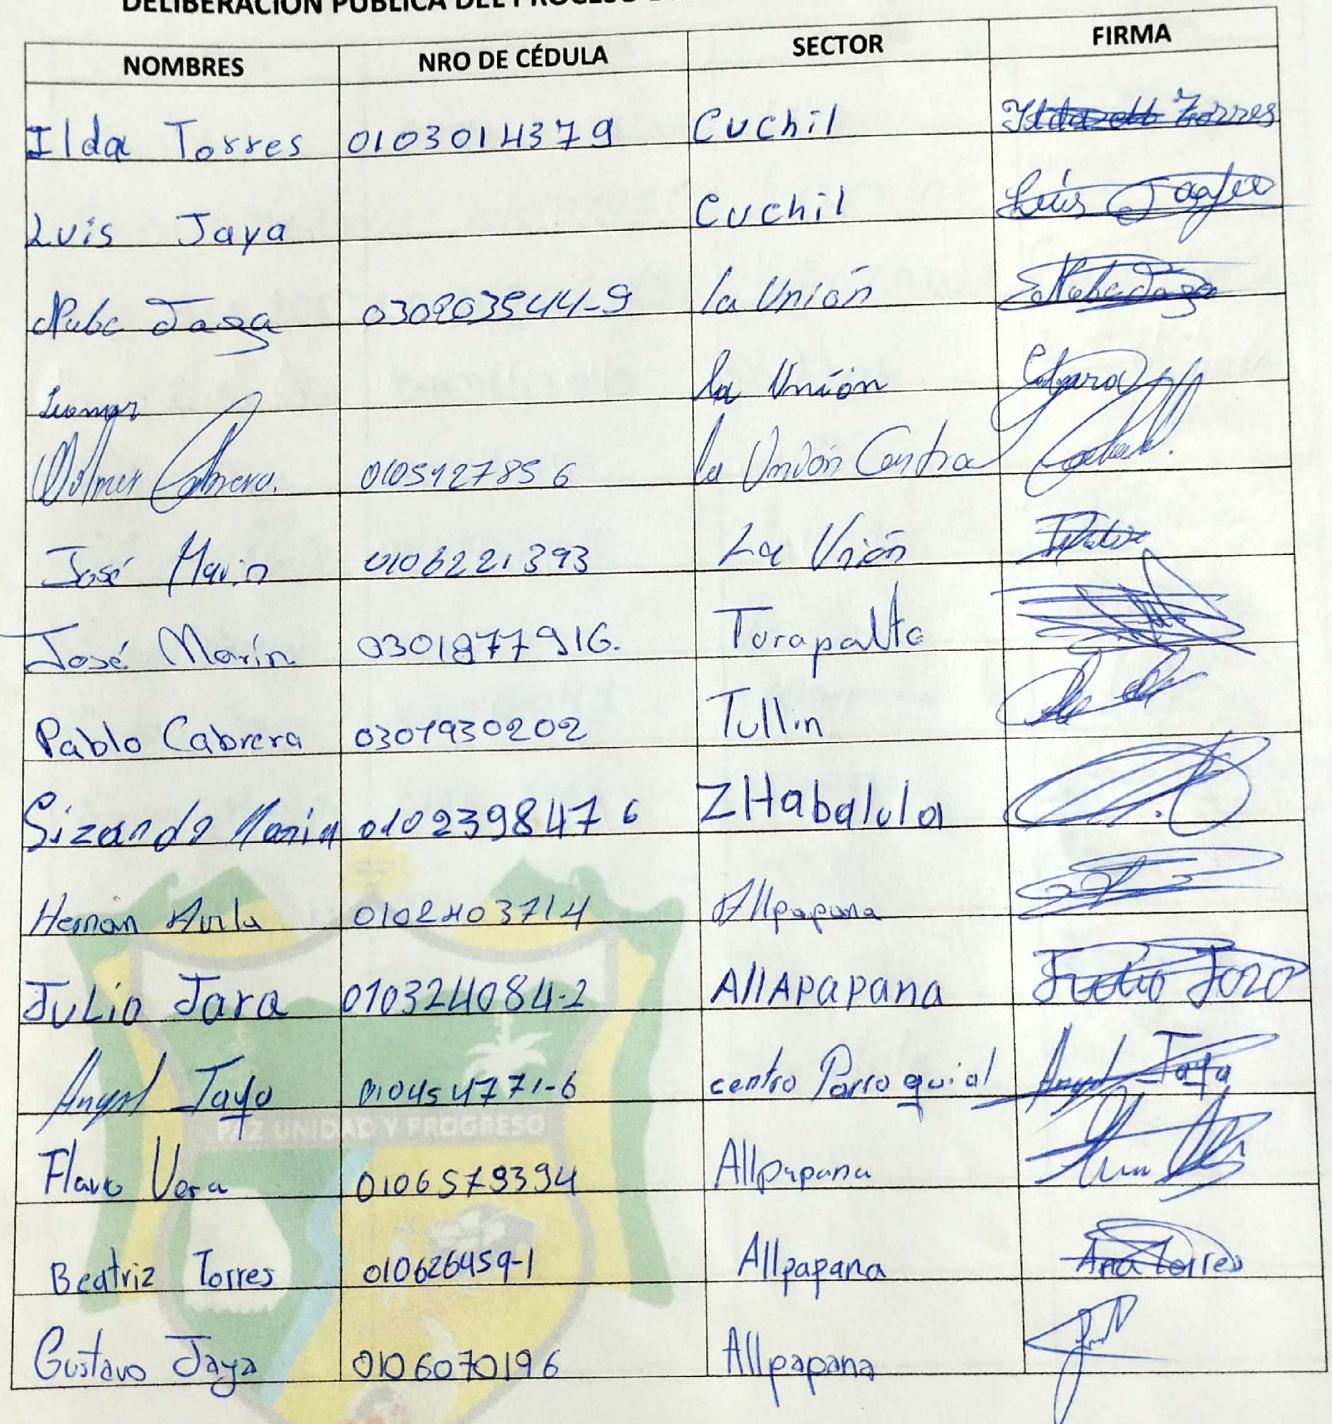 DELIBERACIÓN PÚBLICA DEL PROCESO
NOMBRES NRO DE CÉDULA SECTOR FIRMA
Ilda Torres 0103014379 Cuchil Torres
Luis Jaya Cuchil Luis
Nube 030203544-9 la Unión
la Unión
Wilmer Cabrera. 0105127856 la Unión Central
José Marin 0106221393 La Unión
José Marín 0301877916. Torapalta
Pablo Cabrera 0301930202 Tullin
Sizando Marin 0102398476 ZHabalula
Hernán Avila 0102403714 Allpapana
Julio Jara 010324084-2 AllApapana Julio
Angel Jaya 010454771-6 centro Parroquial Angel Jaya
Vera 0106579394 Allpapana
PAZ UNIDAD Y PROGRESO
Beatriz Torres 010626459-1 Allpapana Ana Torres
Gustavo Jaya 0106070196 Allpapana